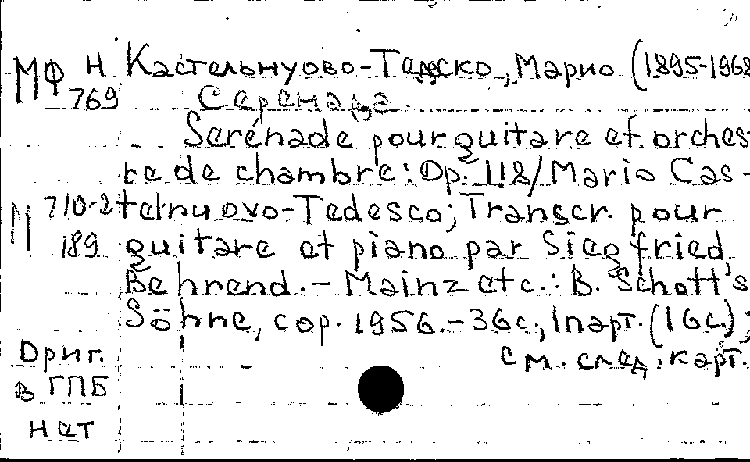 МФ Н Кастельнуово-Тедеско, Марио (1895-1968
769 Серенада
Serénade pour guitare et orches
tre de chambre: Op. 118/ Mario Cas-
М 710-2 telnuovo-Tedesco; Transcr. pour
189 guitare et piano par Siegfried
Behrend. - Mainz etc.: B. Schott's
Söhne, cop. 1956. - 36с., 1парт. (16с.);
Ориг. см. след. карт.
в ГПБ
нет